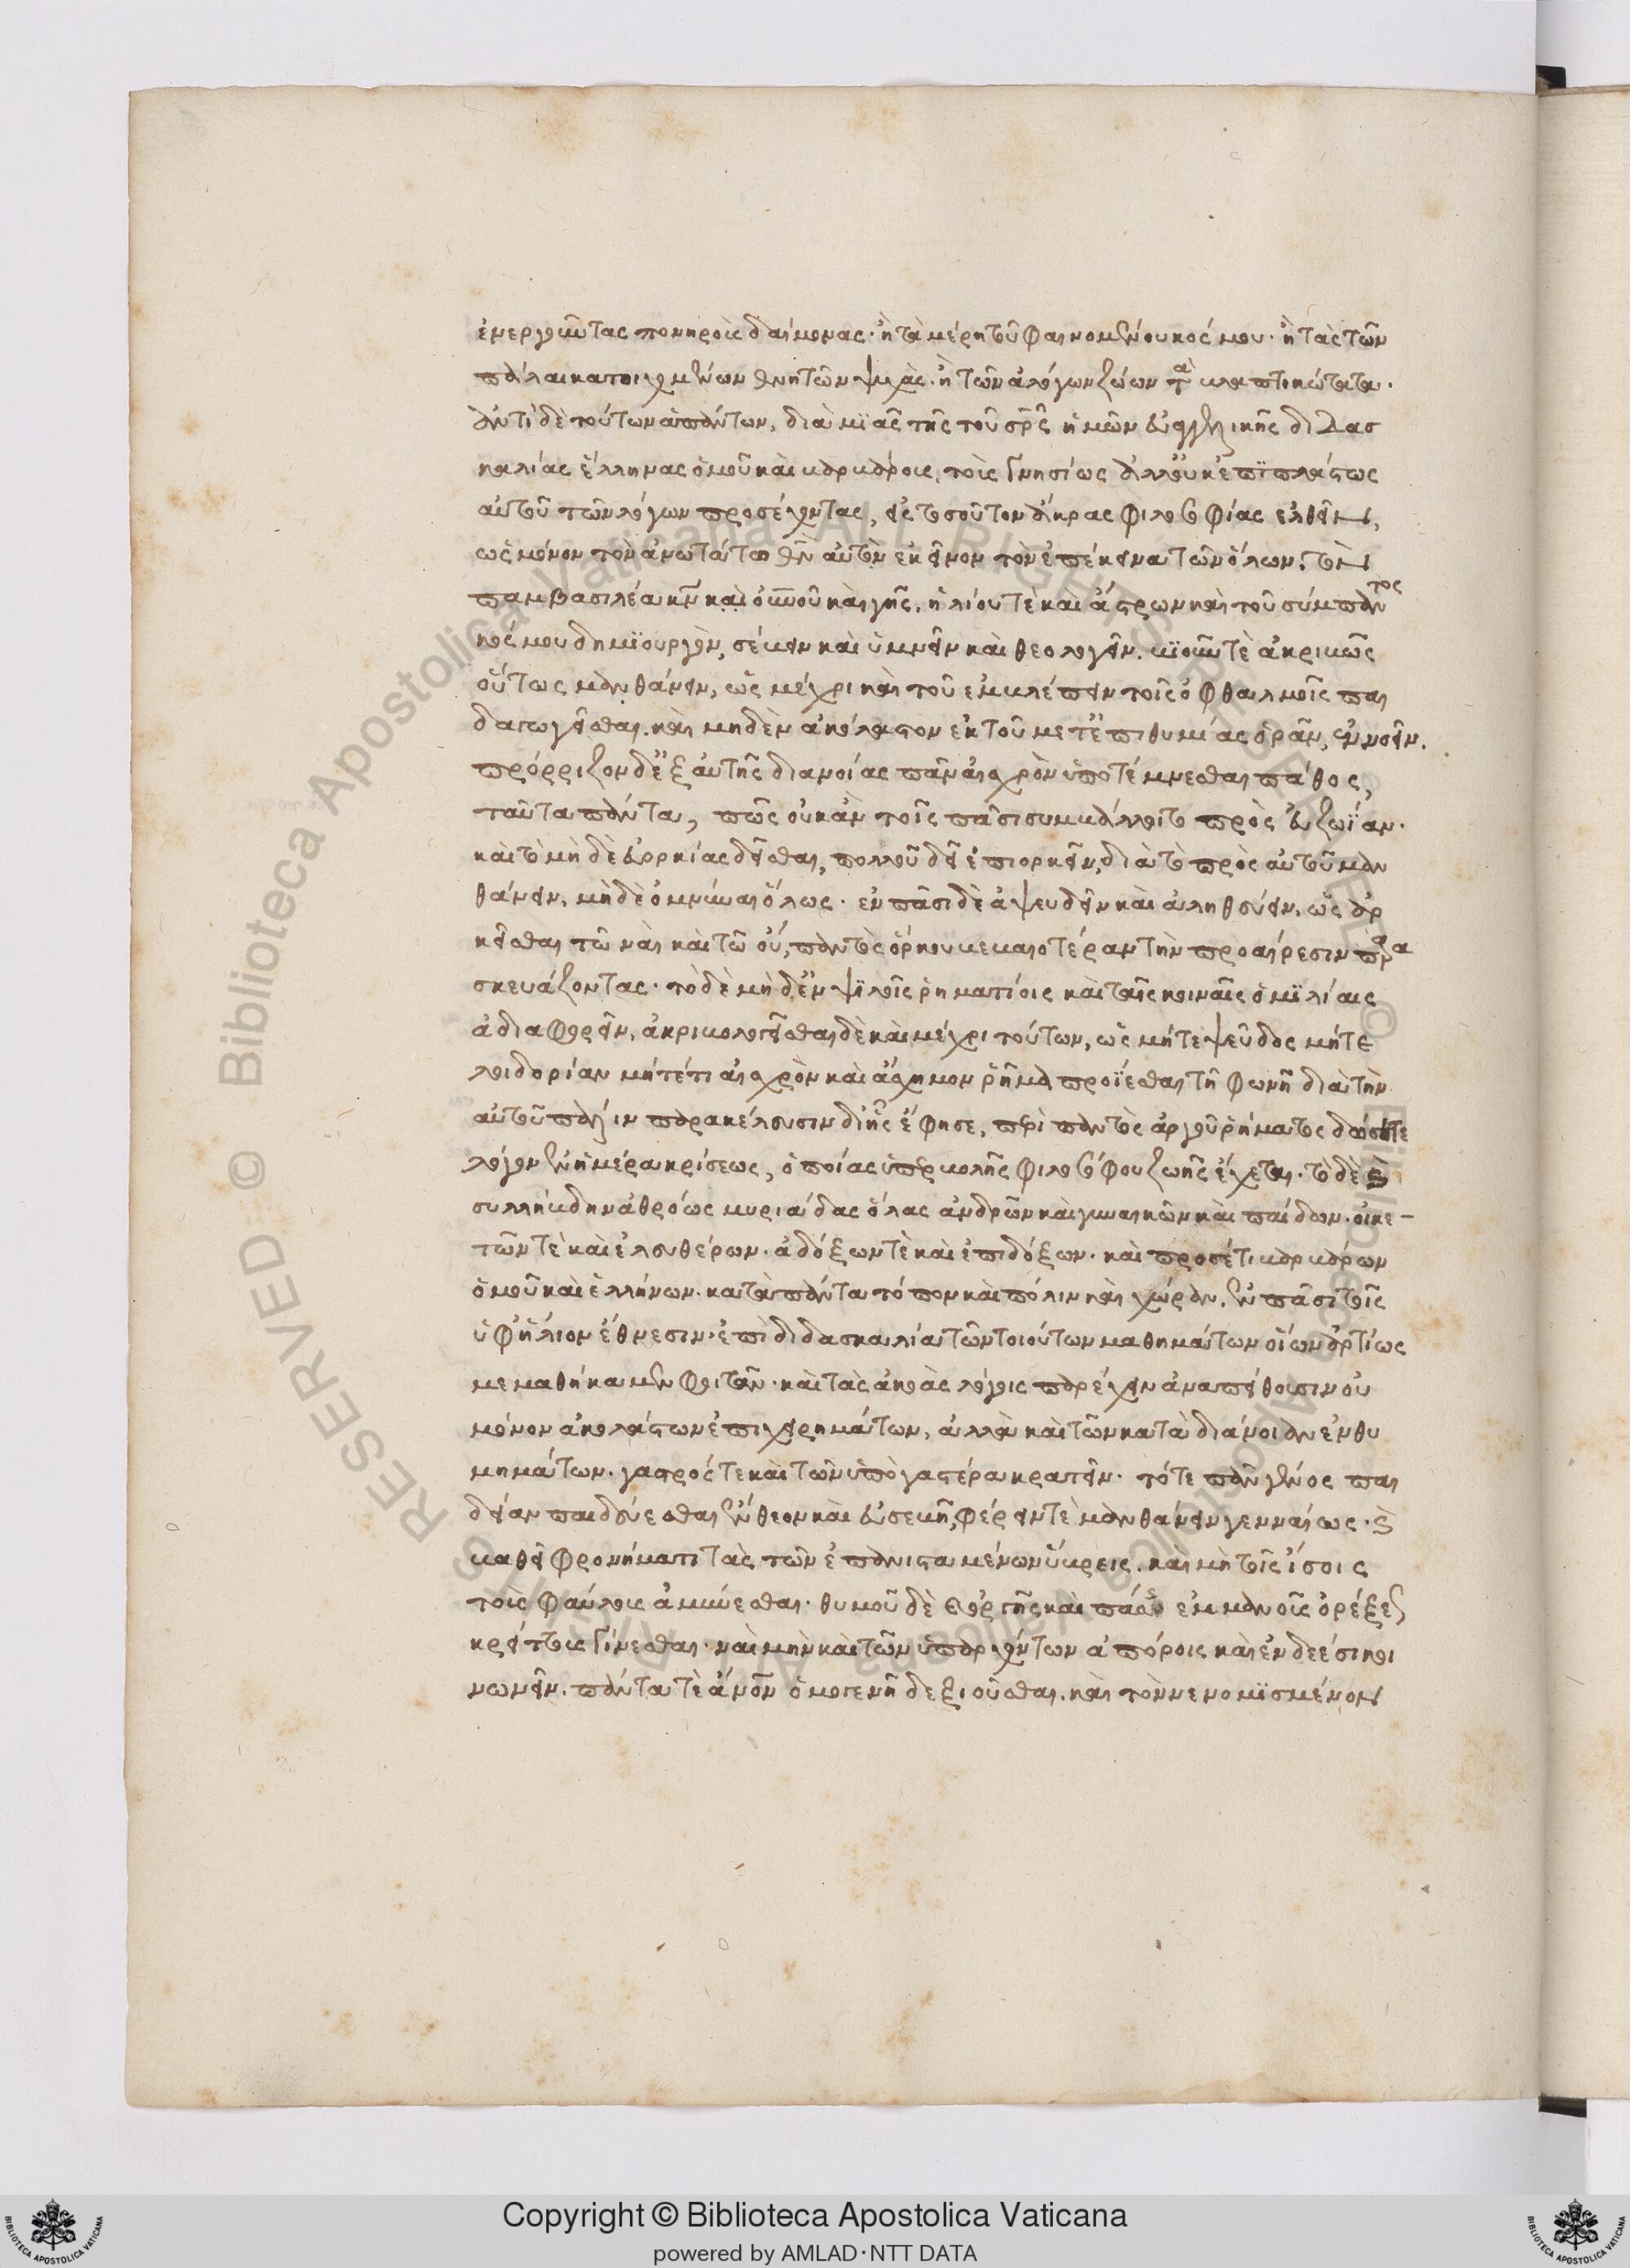 ἐνεργοῦντας πονηροὺς δαίμονας· ἢ τὰ μέρη τοῦ φαινομένου κόσμου· ἢ τὰς τῶν
πάλαι κατοιχομένων θνητῶν ψυχὰς· ἢ τῶν ἀλόγων ζώων τὰ βλαπτικώτατα·
ἀντὶ δὲ τούτων ἁπάντων, διὰ μϊᾶς τῆς τοῦ σρ̅ς ἡμῶν εὐαγγελικῆς διδασ
καλίας ἕλληνας ὁμοῦ καὶ βαρβάρους, τοὺς γνησίως ἀλλ' οὐκ ἐπϊπλάστως
αὐτοῦ τῶν λόγων προσέχοντας, εἰς τοσοῦτον ἄκρας φιλοσοφίας ἐλθεῖν,
ὡς μόνον τὸν ἀνωτάτω θν̅ αὐτὸν ἐκεῖνον τὸν ἐπέκεινα τῶν ὅλων· τὸν
παμβασιλέα κν̅ καὶ οὐ̅νοῦ καὶ γῆς, ἡλίου τὲ καὶ ἄστρων καὶ τοῦ σύμπαντος
κόσμου δημϊουργὸν, σέβειν καὶ ὑμνεῖν καὶ θεολογεῖν. βϊοῦν τὲ ἀκριβῶς
οὕτως μανθάνειν, ὡς μέχρι καὶ τοῦ ἐμβλέπειν τοῖς ὀφθαλμοῖς παι
δαγωγεῖσθαι. καὶ μηδὲν ἀκόλαστον ἐκ τοῦ μετ' ἐπιθυμίας ὁρᾶν, ἐννοεῖν.
πρόρριζον δ' ἐξ αὐτῆς διανοίας πᾶν αἰσχρὸν ὑποτέμνεσθαι πάθος,
ταῦτα πάντα, πῶς οὐκ ἂν τοῖς πᾶσι συμβάλλοιτο πρὸς εὐζωΐαν·
καὶ τὸ μὴ δὲ εὐορκίας δεῖσθαι, πολλοῦ δεῖ ἐπιορκεῖν, διὰ τὸ πρὸς αὐτοῦ μαν
θάνειν, μὴ δὲ ὀμνύναι ὅλως· ἐν πᾶσι δὲ ἀψευδεῖν καὶ ἀληθεύειν, ὡς ἀρ
κεῖσθαι τῶ ναὶ καὶ τῶ οὔ, παντὸς ὅρκου βεβαιοτέραν τὴν προαίρεσιν παρα
σκευάζοντας· τὸ δὲ μὴ δ' ἐν ψϊλοῖς ῥηματίοις καὶ ταῖς κοιναῖς ὁμϊλίαις
ἀδιαφορεῖν, ἀκριβολογεῖσθαι δὲ καὶ μέχρι τούτων, ὡς μήτε ψεῦδος μήτε
λοιδορίαν μήτέ τι αἰσχρὸν καὶ ἄσχημον ῥῆμα προΐεσθαι τῆ φωνῆ διὰ τὴν
αὐτοῦ πάλιν παρακέλευσιν δι' ἧς ἔφησε, περὶ παντὸς ἀργοῦ ῥήματος δώσετε
λόγον ἐν ἡμέρα κρίσεως, ὁποίας ὑπερβολῆς φιλοσόφου ζωῆς ἔχεται· τὸ δὲ καὶ
συλλήβδην ἀθρόως μυριάδας ὅλας ἀνδρῶν καὶ γυναικῶν καὶ παίδων· οἰκε-
τῶν τὲ καὶ ἐλευθέρων· ἀδόξων τὲ καὶ ἐπιδόξων· καὶ προσέτι βαρβάρων
ὁμοῦ καὶ ἑλλήνων· κατὰ πάντα τόπον καὶ πόλιν καὶ χώραν, ἐν πᾶσι τοῖς
ὑφ' ἥλιον ἔθνεσιν· ἐπὶ διδασκαλία τῶν τοιούτων μαθημάτων οἵων ἀρτίως
μεμαθήκαμεν φοιτᾶν· καὶ τὰς ἀκοὰς λόγοις παρέχειν ἀναπείθουσιν οὐ
μόνον ἀκολάστων ἐπιχειρημάτων, ἀλλὰ καὶ τῶν κατὰ διάνοιαν ἐνθυ
μημάτων· γαστρός τε καὶ τῶν ὑπὸ γαστέρα κρατεῖν· τό τε πᾶν γένος παι
δείαν παιδεύεσθαι ἔνθεον καὶ εὐσεβῆ, φέρειν τὲ μανθάνειν γενναίως· καὶ
βαθεῖ φρονήματι τὰς τῶν ἐπανισταμένων ὕβρεις, καὶ μὴ τοῖς ἴσοις
τοὺς φαύλους ἀμύνεσθαι· θυμοῦ δὲ καὶ ὀργῆς καὶ πάσης ἐμμανοῦς ὀρέξεως
κρείττους γίνεσθαι· ναὶ μὴν καὶ τῶν ὑπαρχόντων ἀπόροις καὶ ἐνδεέσι κοι
νωνεῖν. πάντα τὲ ἄνον̅ ὁμογενῆ δεξιοῦσθαι. καὶ τὸν νενομϊσμένον
Copyright © Biblioteca Apostolica Vaticana
powered by AMLAD·NTT DATA